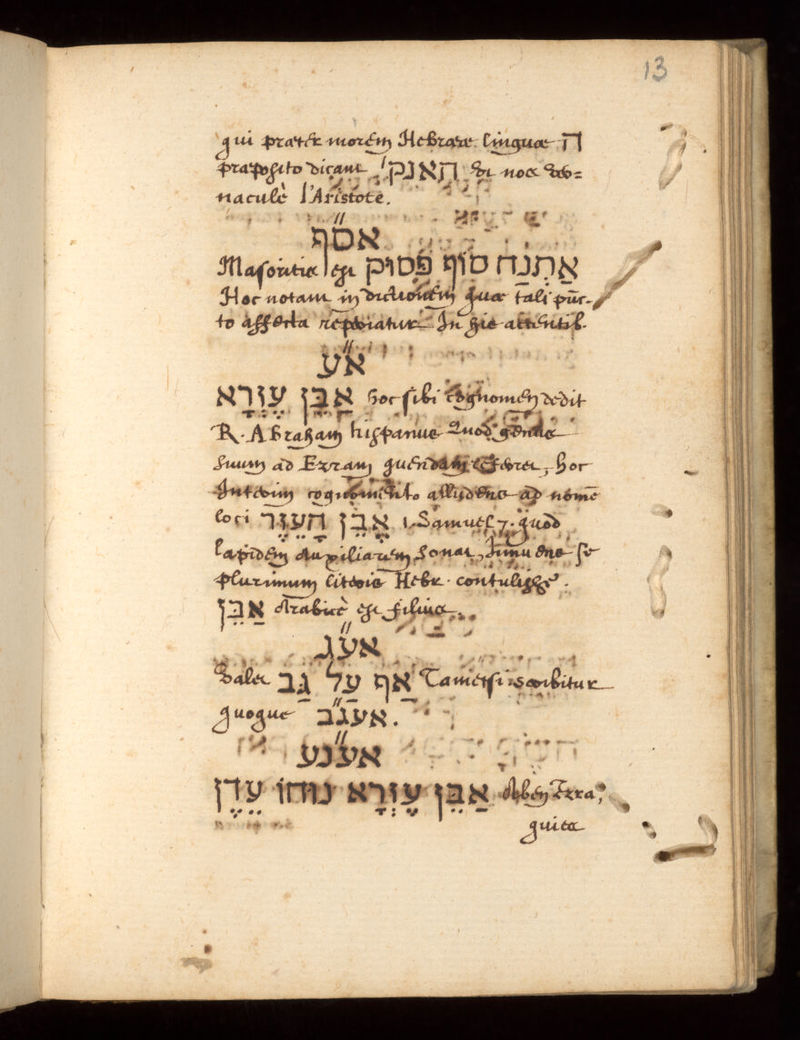 13
qui præter morem Hebrææ linguæ ה
præposito dicant האנקי di nos ver=
naculè l'Aristote.
אס״ף
Masoritis est אַתְנַח סוֹף פָּסוּק
Hoc notant in dictionem quæ tali pūc-
to affecta reperiatur In his attentis.
א״ע
אֲבֵּן עֶזְרָא hoc sibi cognomen dedit
R. Abraham hispanus Quod genus
suum ad Ezram quendam, hoc
Interim cognomento alludens ad nomē
loci אֶבֶן הָעֵזֶר 1. Samuel 7. quod
lapidem Auxiliarem sonat, se
plurimum literis Hebr. contulisse.
אַבֵּן Arabicè est filius.
אע״ג
Valet אַף עַל גַּב Tametsi scribitur
quoque אעג״ב.
אענ״ע
אַבֵּן עֶזְרָא נוּחוֹ עֵדֶן Aben Ezra,
quies